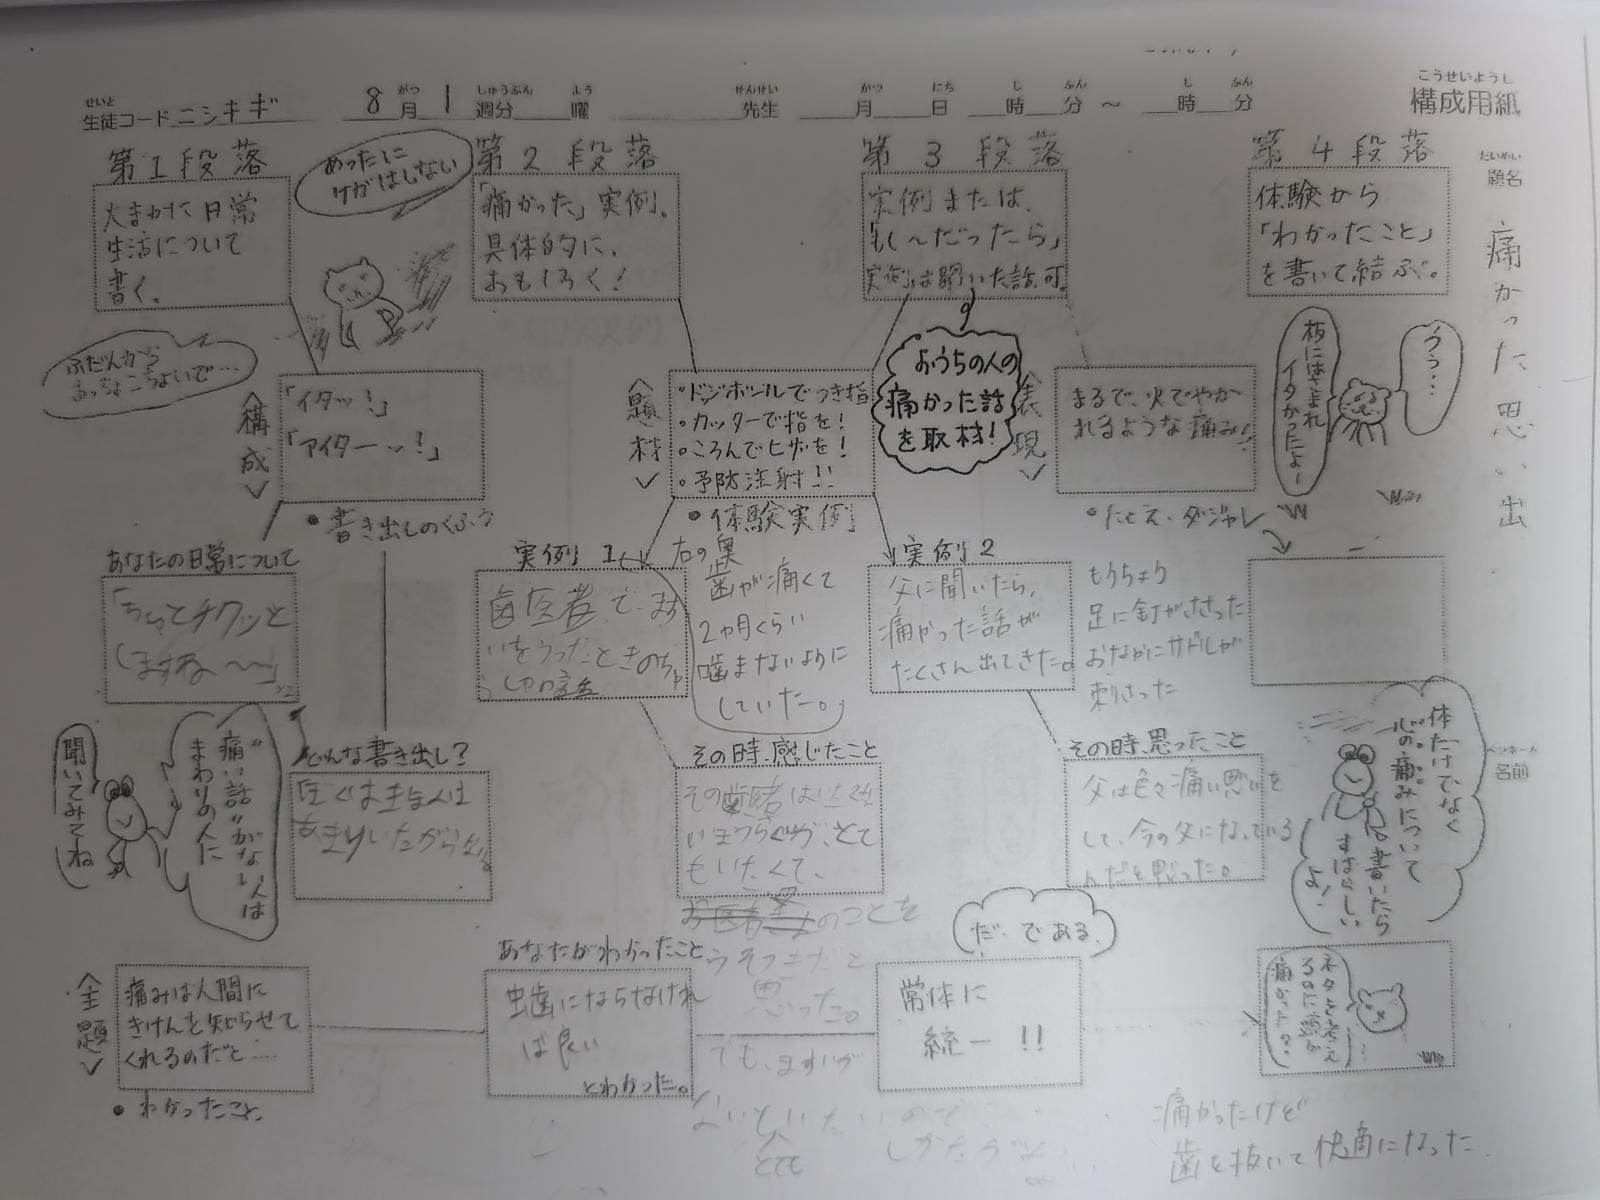 こうせいようし
構成用紙
せいと
生徒コード ニシキギ
8月1週分 曜
がつ しゅうぶん よう
せんせい
先生
がつ にち じ ふん じ ふん
月 日 時 分 〜 時 分
だいめい
題名
痛かった思い出
ペンネーム
名前
第1段落
大まかな日常
生活について
書く。
めったに
けがはしない
第2段落
「痛かった」実例。
具体的に、
おもしろく!
第3段落
実例または、
「もし〜だったら」
実例は聞いた話可。
第4段落
体験から
「わかったこと」
を書いて結ぶ。
ふだんから
おっちょこちょいで…
<構成>
「イタッ!」
「アイターッ!」
・書き出しのくふう
<題材>
・ドッジボールでつき指
・カッターで指を!
・ころんでヒザを!
・予防注射!!
・体験実例
おうちの人の
痛かった話
を取材!
<表現>
まるで、火でやか
れるような痛み!
・たとえ、ダジャレ
板にはさまれ
イタかったよー
うぅ…
あなたの日常について
「ちょっとチクッと
しますね〜」
実例1
歯医者で、ますい
をうったときの
右の奥
歯が痛くて
2ヵ月くらい
噛まないように
していた。
実例2
父に聞いたら、
痛かった話が
たくさん出てきた。
もうちょう
足に釘がささった
おなかにサドルが
刺さった
聞いてみてね
"痛い話"がない人は
まわりの人に
どんな書き出し?
その時、感じたこと
とて
もいたくて、
のことを
うそつきだと
思った。
でも、ますいが
ないといたいので
とても
しかたがない
その時、思ったこと
父は色々痛い思いを
して、今の父になっている
んだと思った。
体だけでなく
心の痛みについて
書いたら
すばらしい
よ!
<主題>
痛みは人間に
きけんを知らせて
くれるのだと…
・わかったこと
あなたがわかったこと
虫歯にならなけれ
ば良い
とわかった。
だ・である
常体に
統一!!
ネタを考え
るのに頭が
痛かったよ。
痛かったけど
歯を抜いて快適になった